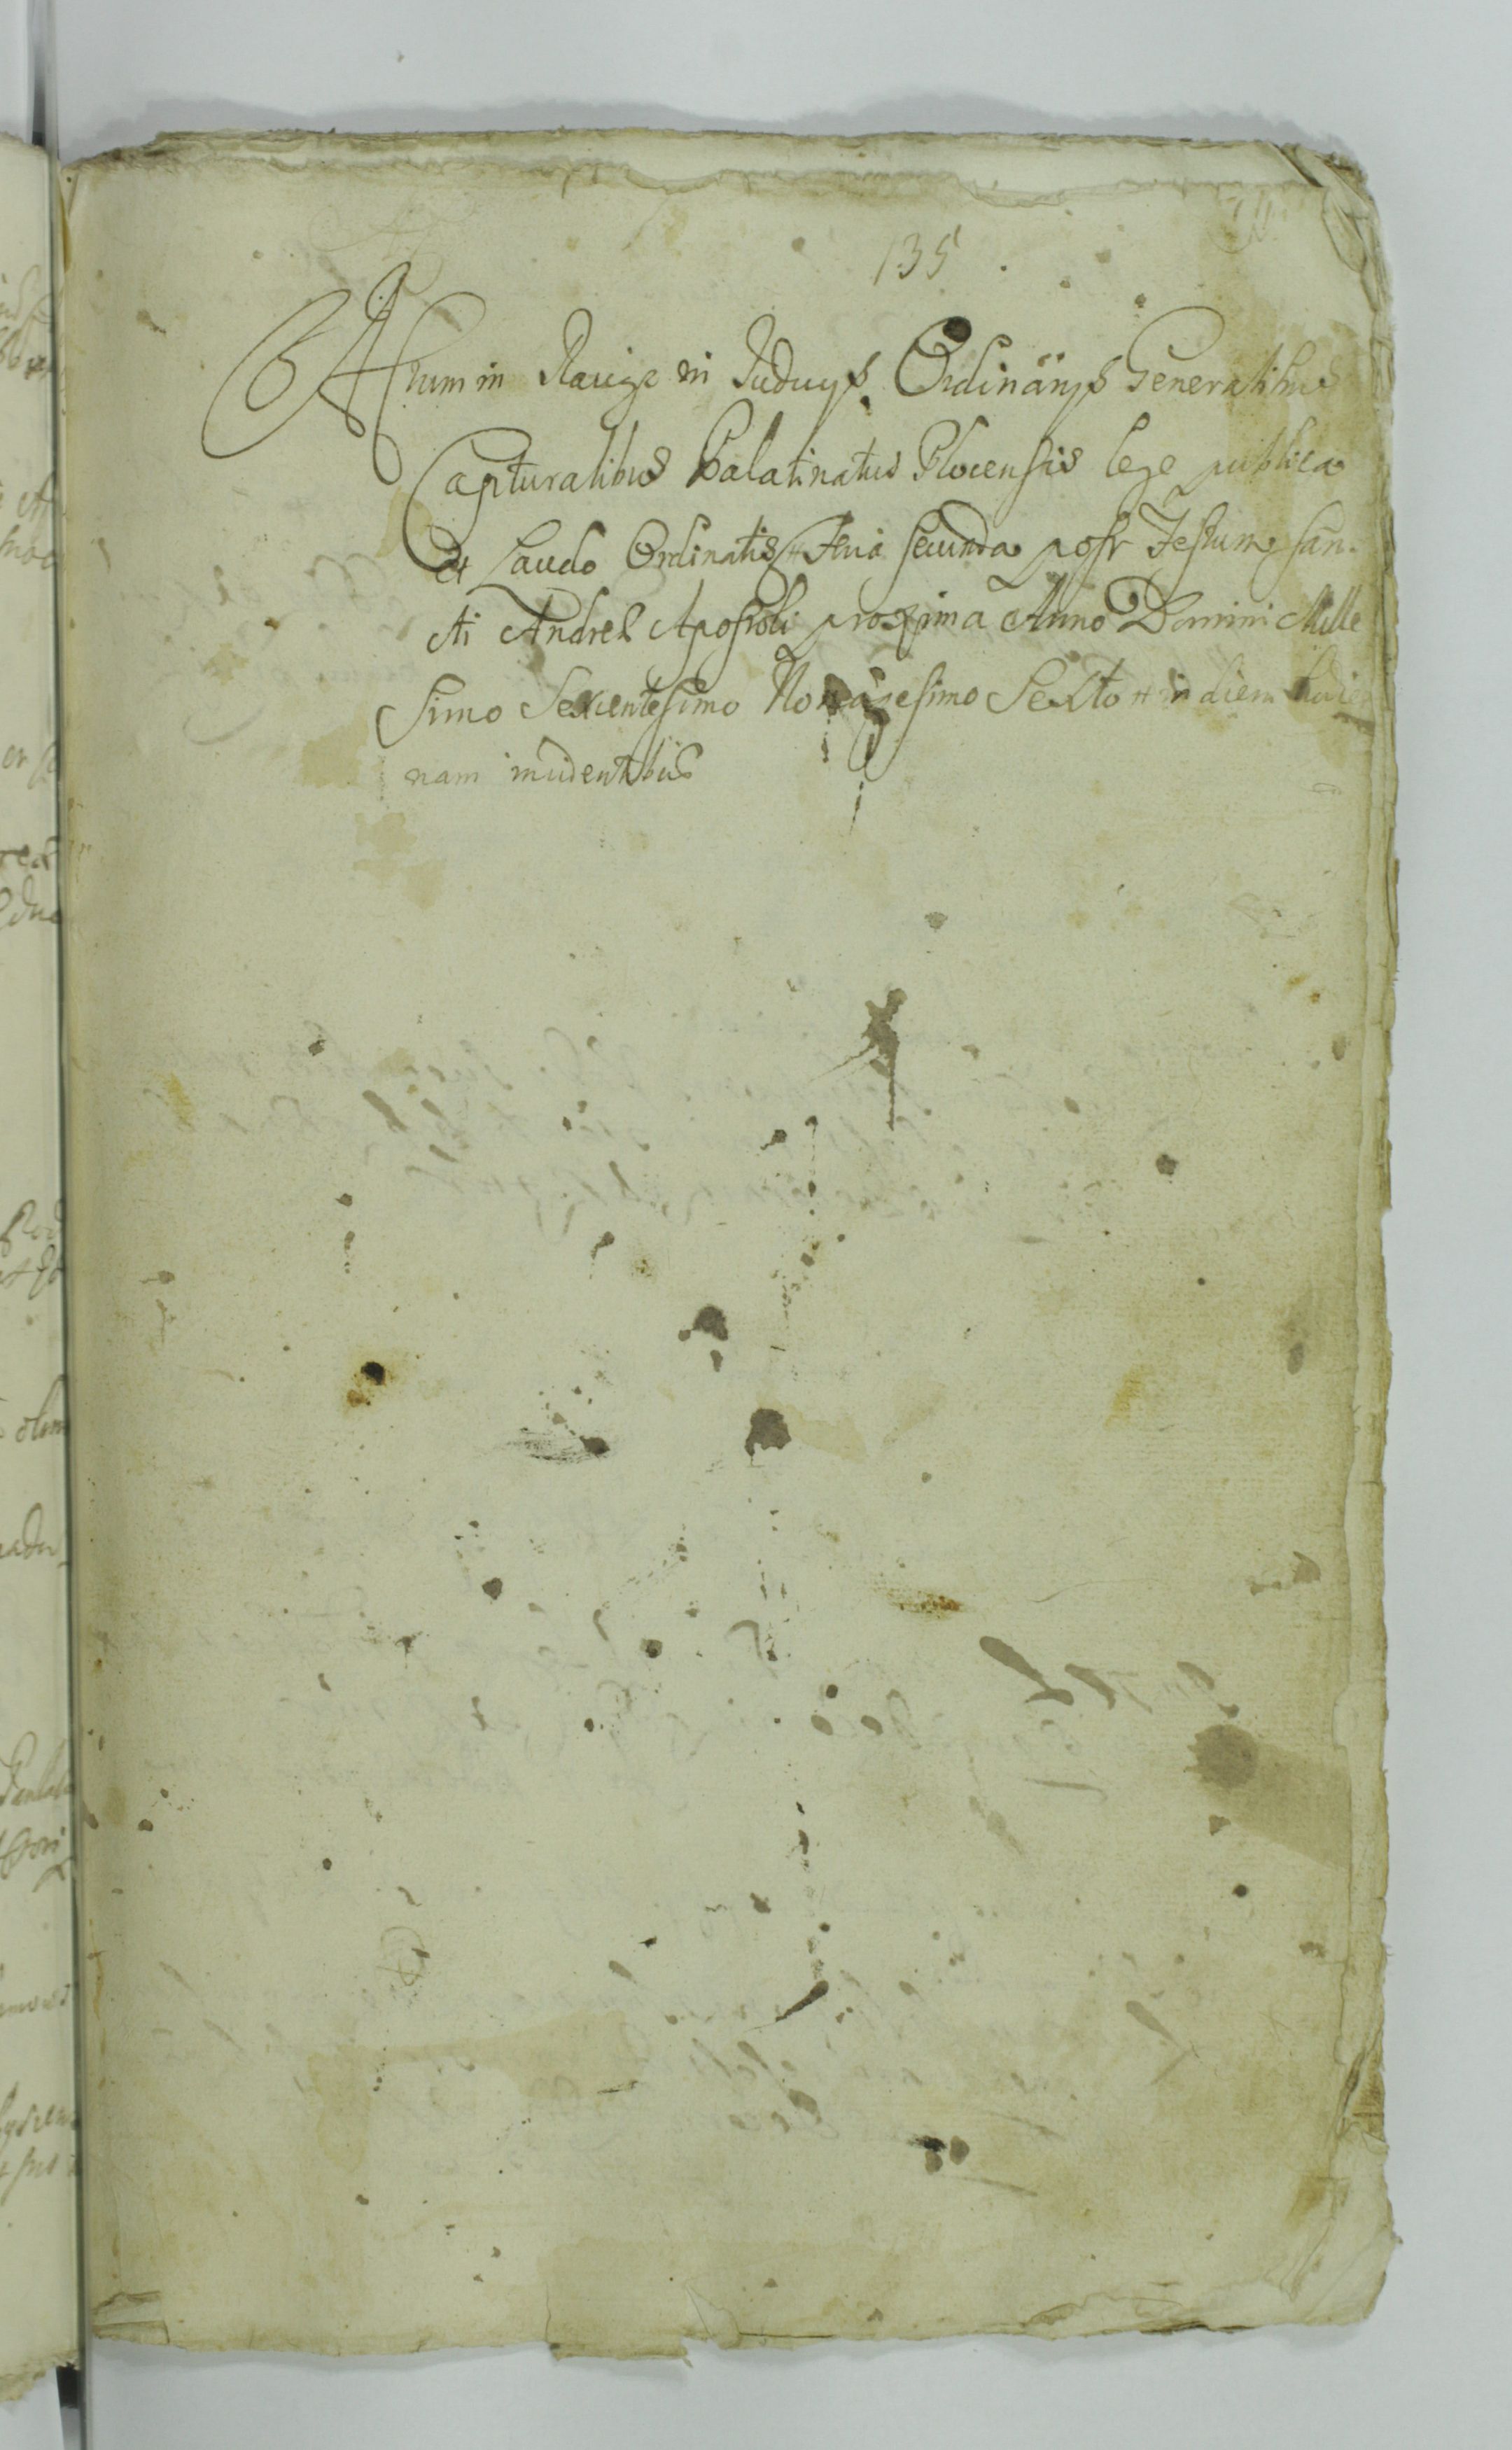 135
Actum in Raciąz in Judicijs Ordinarijs Generalibus
Capturalibus Palatinatus Plocensis lege publica
et Laudo Ordinatis Feria secunda post Festum San-
cti Andreæ Apostoli proxima Anno Domini Mille
simo Sexcentesimo Nonagesimo Sexto in diem hodier
nam incidentibus